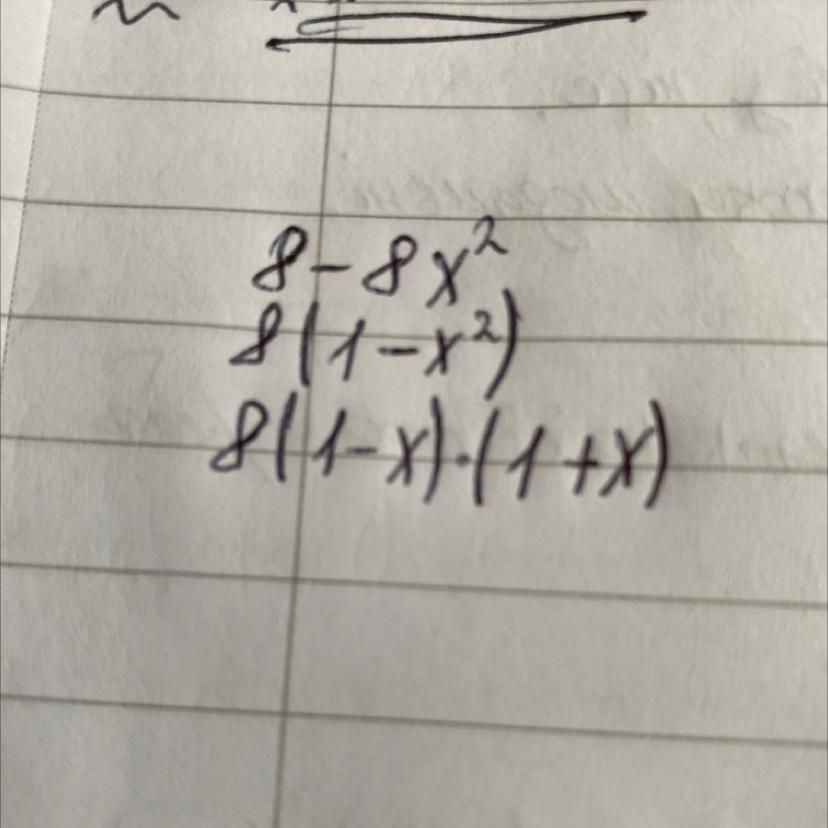 8 - 8x²
8(1 - x²)
8(1 - x) · (1 + x)